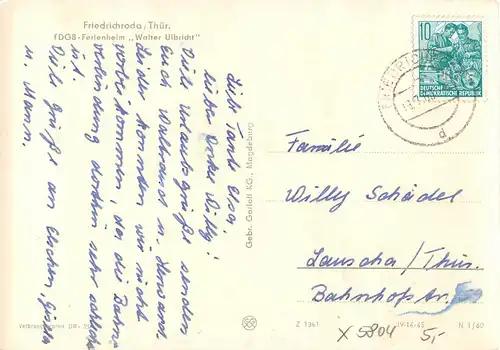 Friedrichroda/Thür.
FDGB-Ferienheim „Walter Ulbricht"
Liebe Tante Elsa,
lieber Onkel Willy!
Viele Urlaubsgrüße senden
Euch Waltraud u.
Leider konnten wir nicht
vorbei kommen, da die Bahn-
verbindung dorthin sehr schlecht
ist.
Viele Grüße an Elschen, Gisela
u. Mann.
Gebr. Garloff KG., Magdeburg
10
DEUTSCHE
DEMOKRATISCHE REPUBLIK
d
Familie
Willy Schädel
Lauscha/Thür.
Bahnhofstr.
Z 1361
IV-14-45
N 1/60
X 5804
5,-